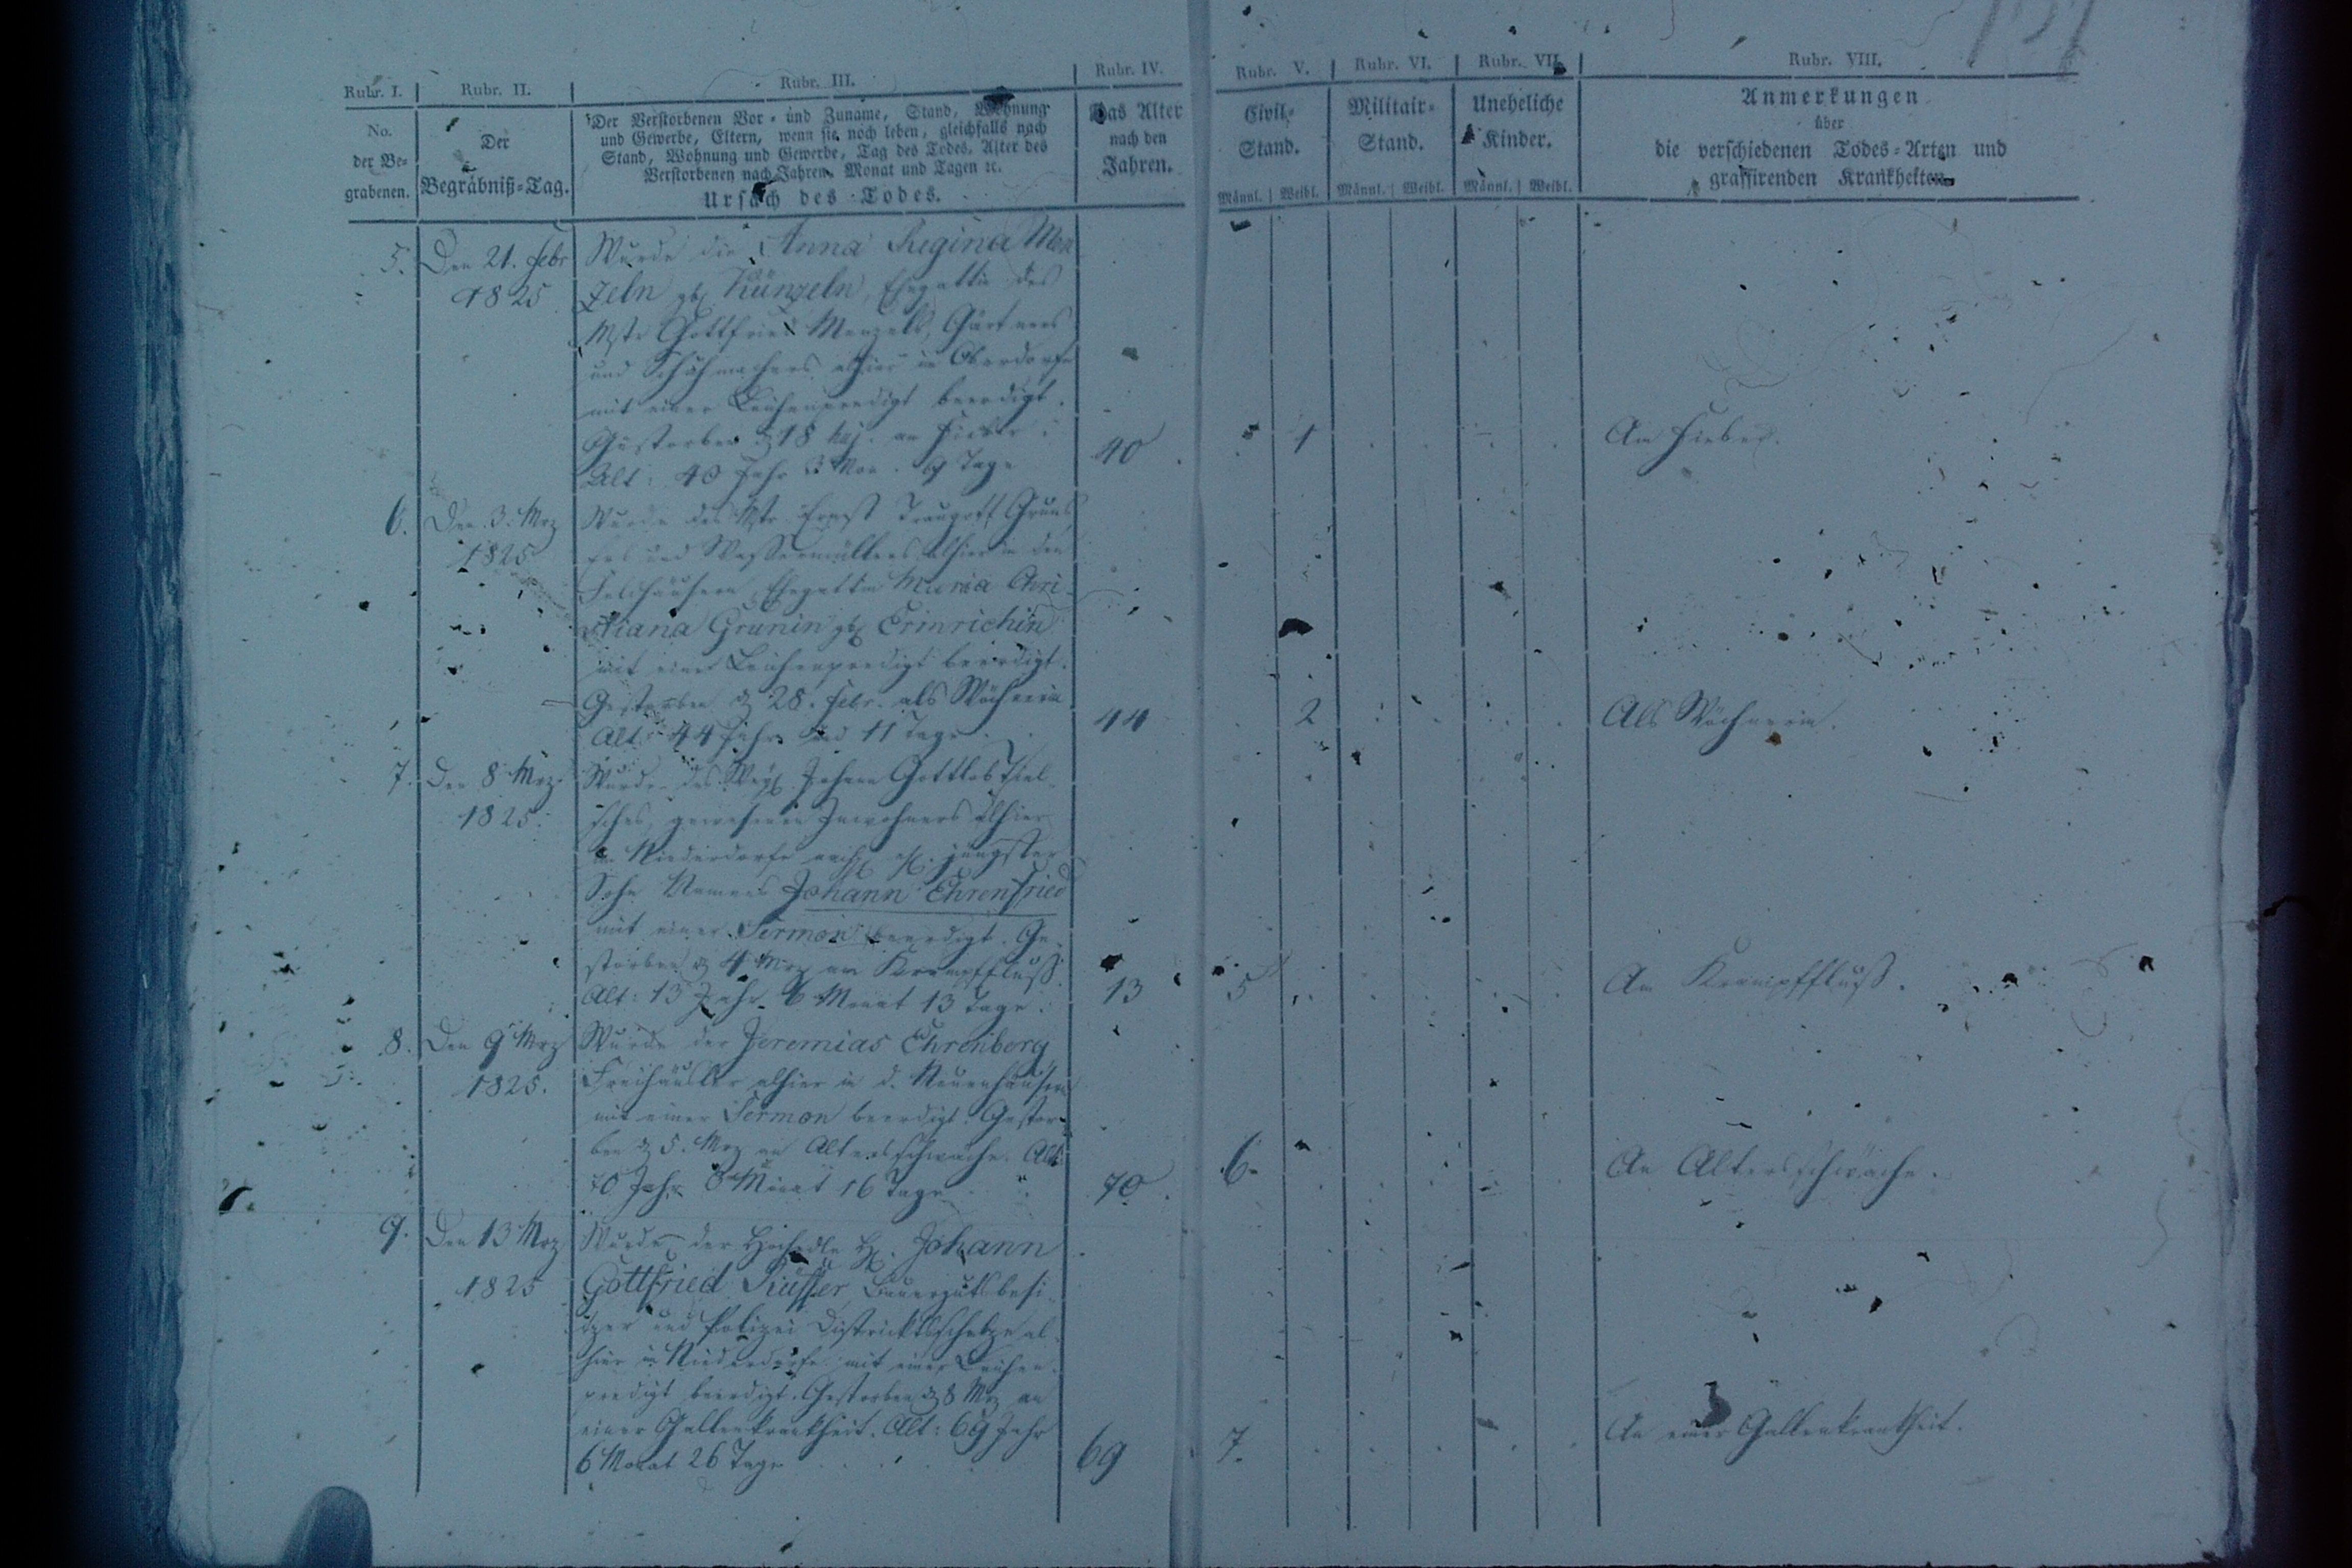 Rubr. I.
Rubr. II.
Rubr. III.
Rubr. IV.
Rubr. V.
Rubr. VI.
Rubr. VII.
Rubr. VIII.
No.
der Be-
grabenen.
Der
Begräbniß-Tag.
Der Verstorbenen Vor- und Zuname, Stand, Wohnung
und Gewerbe, Eltern, wenn sie noch leben, gleichfalls nach
Stand, Wohnung und Gewerbe, Tag des Todes, Alter des
Verstorbenen nach Jahren, Monat und Tagen ꝛc.
Ursach des Todes.
Das Alter
nach den
Jahren.
Civil-
Stand.
Männl. | Weibl.
Militair-
Stand.
Männl. | Weibl.
Uneheliche
Kinder.
Männl. | Weibl.
Anmerkungen
über
die verschiedenen Todes-Arten und
grassirenden Krankheiten.
5.
Den 21. Febr
1825
Wurde die Anna Regina Men
zeln gb. Künzeln, Ehegattin des
Mstr Gottfried Menzels, Gärtners
und Schuhmachers alhier in Oberdorfe
mit einer Leichenpredigt beerdigt.
Gestorben d 18 huj. an Fieber:
Alt: 40 Jahr 3 Mon. 9 Tage
40
1
Am Fieber.
6.
Den 3. Mrz
1825
Wurde des Mstr Ernst Traugott
und Wassermüllers alhier in den
Feldhäusern, Ehegattin Maria Chri-
stiana Grunin gb. Ermrichin
mit einer Leichenpredigt beerdigt.
Gestorben d 28. Febr. als Wöchnerin
Alt: 44 Jahr und 11 Tage
44
2
Als Wöchnerin.
7.
Den 8 Mrz.
1825.
Wurde des Johann Gottlob
gewesenen Inwohners alhier
in Niederdorfe jüngster
Sohn Namens Johann Ehrenfried
mit einer Sermon beerdigt. Ge-
storben d 4 Mrz am Krampffluß.
Alt: 13 Jahr 6 Monat 13 Tage.
13
5
Am Krampffluß.
8.
Den 9 Mrz
1825.
Wurde der Jeremias Ehrenberg
Freihäusler alhier in d. Neuenhäusern
mit einer Sermon beerdigt. Gestor-
ben d 5. Mrz an Altersschwäche. Alt:
70 Jahr 8 Monat 16 Tage
70
6.
An Altersschwäche.
9.
Den 13 Mrz
1825
Wurde der Hochedle H. Johann
Gottfried Bauerguthsbesi-
tzer und Polizei Districktsscholze al-
hier in Niederdorfe mit einer Leichen-
predigt beerdigt. Gestorben d 8 Mrz an
einer Gallenkrankheit. Alt: 69 Jahr
6 Monat 26 Tage
69
7.
An einer Gallenkrankheit.